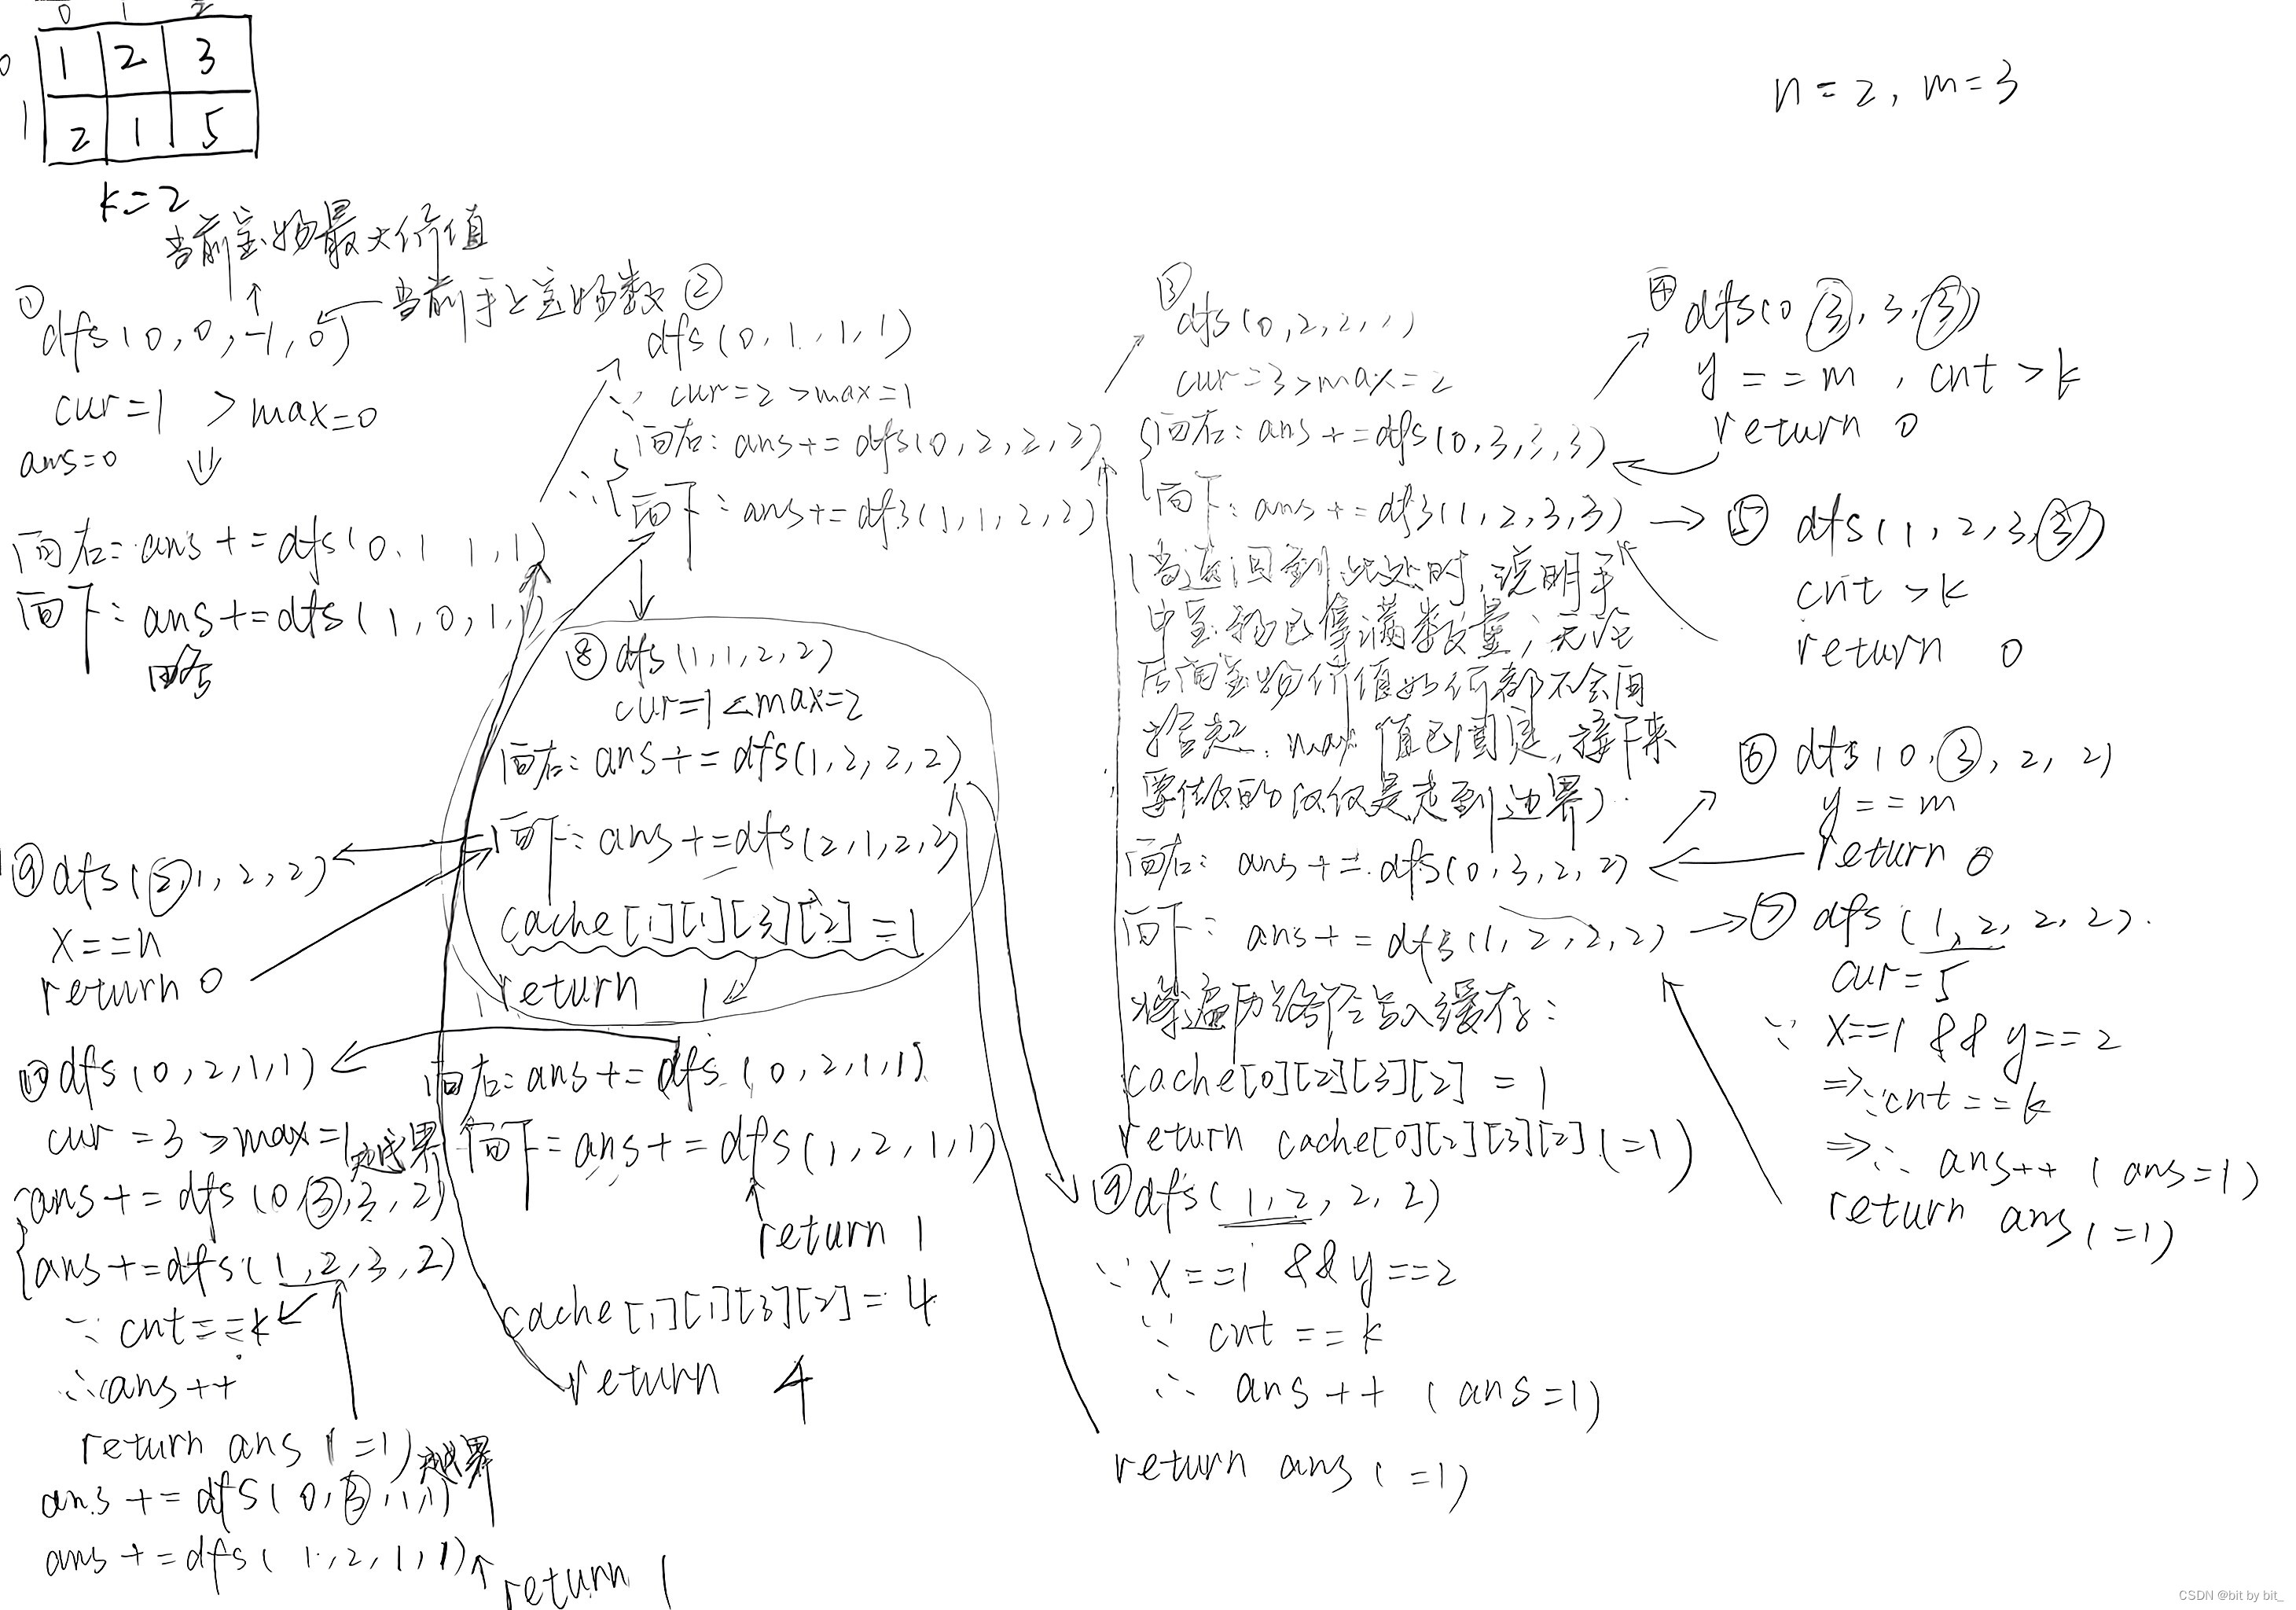 0 1 2
0 1 2 3
1 2 1 5
k=2
n=2, m=3
当前宝物最大价值
当前手上宝物数
①
dfs(0,0,-1,0)
cur=1 >max=0
ans=0
向右: ans+=dfs(0,1,1,1)
向下: ans+=dfs(1,0,1,1)
略
②
dfs(0,1,1,1)
∵ cur=2>max=1
∴
向右: ans+=dfs(0,2,2,2)
向下: ans+=dfs(1,1,2,2)
⑧dfs(1,1,2,2)
cur=1<max=2
向右: ans+=dfs(1,2,2,2)
向下: ans+=dfs(2,1,2,2)
cache[1][1][3][2]=1
return 1
⑨dfs(2,1,2,2)
x==n
return 0
向右: ans+=dfs(0,2,1,1)
向下: ans+=dfs(1,2,1,1)
return 1
cache[1][1][3][2]=4
return 4
⑩dfs(0,2,1,1)
cur=3>max=1
越界
ans+=dfs(0,3,3,2)
ans+=dfs(1,2,3,2)
∵ cnt==k
∴ans++
return ans(=1)
越界
ans+=dfs(0,3,1,1)
ans+=dfs(1,2,1,1)
return 1
③
dfs(0,2,2,2)
cur=3>max=2
向右: ans+=dfs(0,3,3,3)
向下: ans+=dfs(1,2,3,3)
(当返回到此处时,说明手
中宝物已拿满数量,无论
后面宝物价值如何都不会再
拾起.max值已固定,接下来
要做的仅仅是走到边界).
向右: ans+=dfs(0,3,2,2)
向下: ans+=dfs(1,2,2,2)
将遍历路径写入缓存:
cache[0][2][3][2]=1
return cache[0][2][3][2](=1)
⑨dfs(1,2,2,2)
∵ x==1 && y==2
∵ cnt==k
∴ ans++ (ans=1)
return ans(=1)
④dfs(0,3,3,3)
y==m, cnt>k
return 0
⑤ dfs(1,2,3,3)
cnt>k
return 0
⑥ dfs(0,3,2,2)
y==m
return 0
⑦ dfs(1,2,2,2).
cur=5
∵ x==1 && y==2
⇒∵cnt==k
⇒∴ ans++ (ans=1)
return ans(=1)
CSDN @bit by bit_